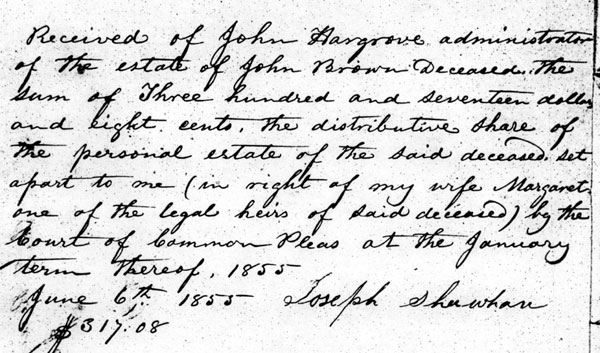 Received of John Hargrove administrator
of the estate of John Brown Deceased, the
sum of Three hundred and seventeen dollars
and eight cents, the distributive share of
the personal estate of the said deceased set
apart to me (in right of my wife Margaret
one of the legal heirs of said deceased) by the
Court of Common Pleas at the January
term thereof, 1855
June 6th 1855 Joseph Shawhan
$317.08